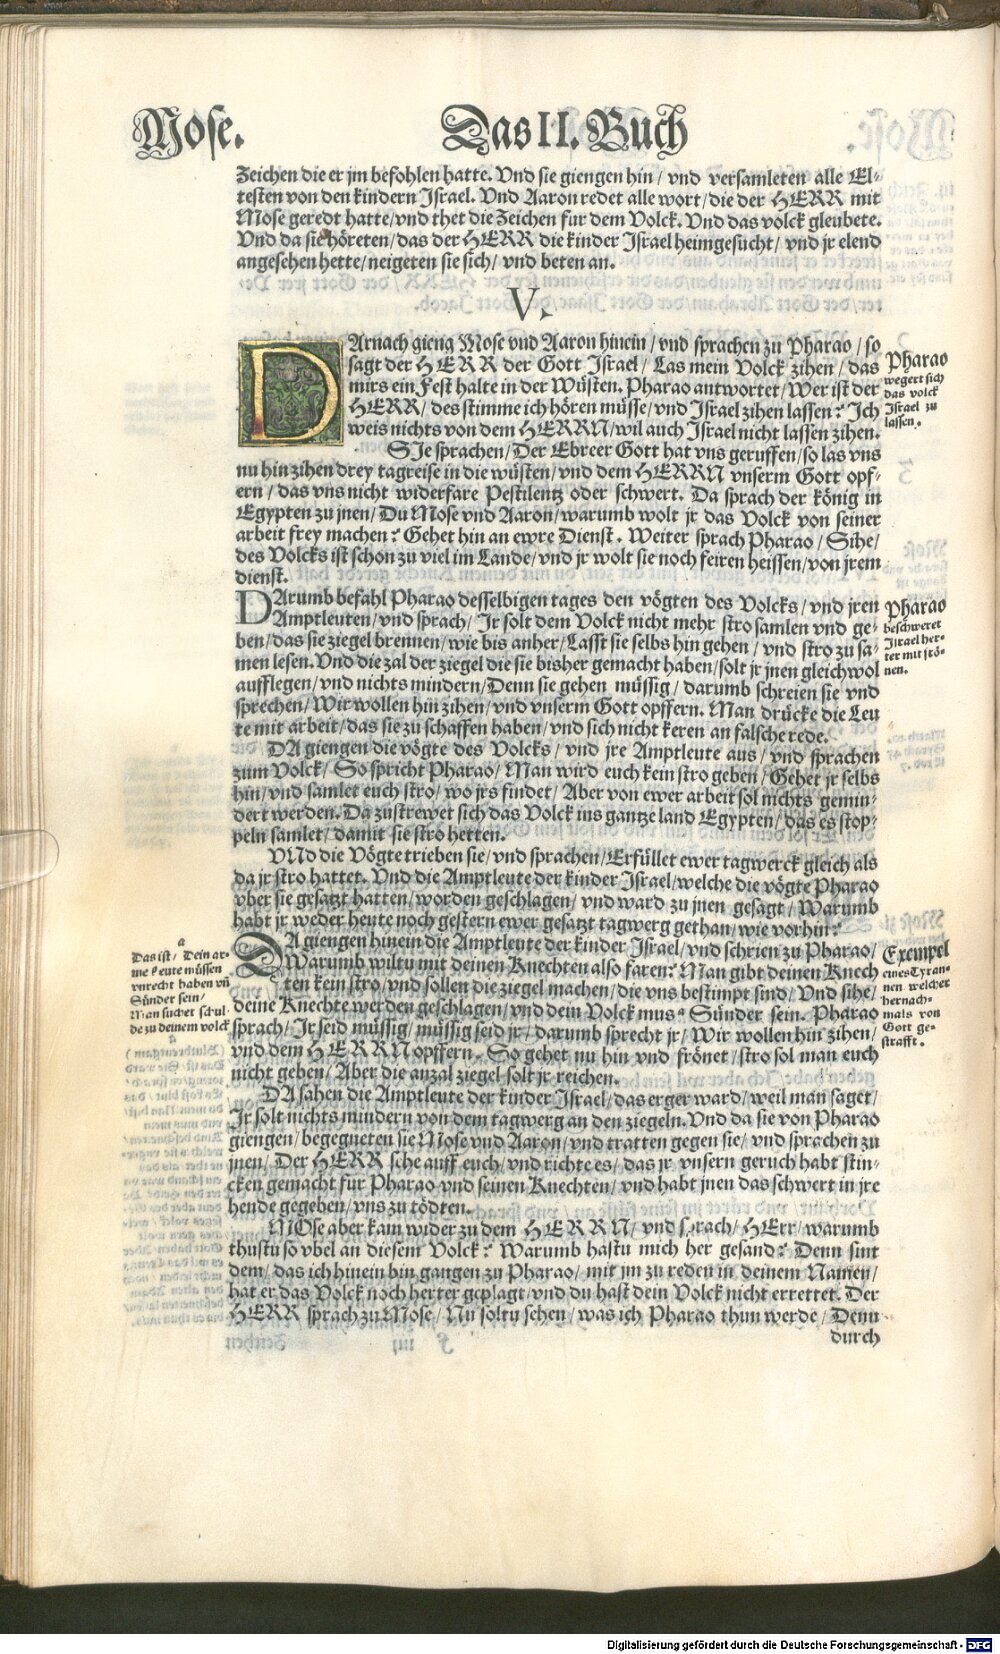 Mose. Das II. Buch
Zeichen die er jm befohlen hatte. Vnd sie giengen hin/ vnd versamleten alle El-
testen von den kindern Jsrael. Vnd Aaron redet alle wort/ die der HERR mit
Mose geredt hatte/ vnd thet die Zeichen fur dem Volck. Vnd das volck gleubete.
Vnd da sie höreten/ das der HERR die kinder Jsrael heimgesucht/ vnd jr elend
angesehen hette/ neigeten sie sich/ vnd beten an.
V.
DArnach gieng Mose vnd Aaron hinein/ vnd sprachen zu Pharao/ so
sagt der HERR der Gott Jsrael/ Las mein Volck zihen/ das
mirs ein Fest halte in der Wüsten. Pharao antwortet/ Wer ist der
HERR/ des stimme ich hören müsse/ vnd Jsrael zihen lassen? Jch
weis nichts von dem HERRN/ wil auch Jsrael nicht lassen zihen.
Pharao
wegert sich
das volck
Jsrael zu
lassen.
SJe sprachen/ Der Ebreer Gott hat vns geruffen/ so las vns
nu hin zihen drey tagreise in die wüsten/ vnd dem HERRN vnserm Gott opf-
ern/ das vns nicht widerfare Pestilentz oder schwert. Da sprach der könig in
Egypten zu jnen/ Du Mose vnd Aaron/ warumb wolt jr das Volck von seiner
arbeit frey machen? Gehet hin an ewre Dienst. Weiter sprach Pharao/ Sihe/
des Volcks ist schon zu viel im Lande/ vnd jr wolt sie noch feiren heissen/ von jrem
dienst.
DArumb befahl Pharao desselbigen tages den vögten des Volcks/ vnd jren
Amptleuten/ vnd sprach/ Jr solt dem Volck nicht mehr stro samlen vnd ge-
ben/ das sie ziegel brennen/ wie bis anher/ Lasst sie selbs hin gehen/ vnd stro zu sa-
men lesen. Vnd die zal der ziegel die sie bisher gemacht haben/ solt jr jnen gleichwol
aufflegen/ vnd nichts mindern/ Denn sie gehen müssig/ darumb schreien sie vnd
sprechen/ Wir wollen hin zihen/ vnd vnserm Gott opffern. Man drücke die Leu
te mit arbeit/ das sie zu schaffen haben/ vnd sich nicht keren an falsche rede.
Pharao
beschweret
Jsrael her-
ter mit frö-
nen.
DA giengen die vögte des Volcks/ vnd jre Amptleute aus/ vnd sprachen
zum Volck/ So spricht Pharao/ Man wird euch kein stro geben/ Gehet jr selbs
hin/ vnd samlet euch stro/ wo jrs findet/ Aber von ewer arbeit sol nichts gemin-
dert werden. Da zustrewet sich das Volck ins gantze land Egypten/ das es stop-
peln samlet/ damit sie stro hetten.
VNd die Vögte trieben sie/ vnd sprachen/ Erfüllet ewer tagwerck gleich als
da jr stro hattet. Vnd die Amptleute der kinder Jsrael/ welche die vögte Pharao
vber sie gesatzt hatten/ worden geschlagen/ vnd ward zu jnen gesagt/ Warumb
habt jr weder heute noch gestern ewer gesatzt tagwerg gethan/ wie vorhin?
DA giengen hinein die Amptleute der kinder Jsrael/ vnd schrien zu Pharao/
Warumb wiltu mit deinen Knechten also faren? Man gibt deinen Knech
ten kein stro/ vnd sollen die ziegel machen/ die vns bestimpt sind/ Vnd sihe/
deine Knechte werden geschlagen/ vnd dem Volck mus a Sünder sein. Pharao
sprach/ Jr seid müssig/ müssig seid jr/ darumb sprecht jr/ Wir wollen hin zihen/
vnd dem HERRN opffern. So gehet nu hin vnd frönet/ stro sol man euch
nicht geben/ Aber die anzal ziegel solt jr reichen.
a
Das ist/ Dein ar-
me Leute müssen
vnrecht haben vñ
Sünder sein/
Man suchet schul
de zu deinem volck
Exempel
eines Tyran-
nen welcher
hernach-
mals von
Gott ge-
strafft.
DA sahen die Amptleute der kinder Jsrael/ das erger ward/ weil man saget/
Jr solt nichts mindern von dem tagwerg an den ziegeln. Vnd da sie von Pharao
giengen/ begegneten sie Mose vnd Aaron/ vnd tratten gegen sie/ vnd sprachen zu
jnen/ Der HERR sehe auff euch/ vnd richte es/ das jr vnsern geruch habt stin-
cken gemacht fur Pharao vnd seinen Knechten/ vnd habt jnen das schwert in jre
hende gegeben/ vns zu tödten.
MOse aber kam wider zu dem HERRN/ vnd sprach/ HErr/ warumb
thustu so vbel an diesem Volck? Warumb hastu mich her gesand? Denn sint
dem/ das ich hinein bin gangen zu Pharao/ mit jm zu reden in deinem Namen/
hat er das Volck noch herter geplagt/ vnd du hast dein Volck nicht errettet. Der
HERR sprach zu Mose/ Nu soltu sehen/ was ich Pharao thun werde/ Denn
durch
Digitalisierung gefördert durch die Deutsche Forschungsgemeinschaft - DFG